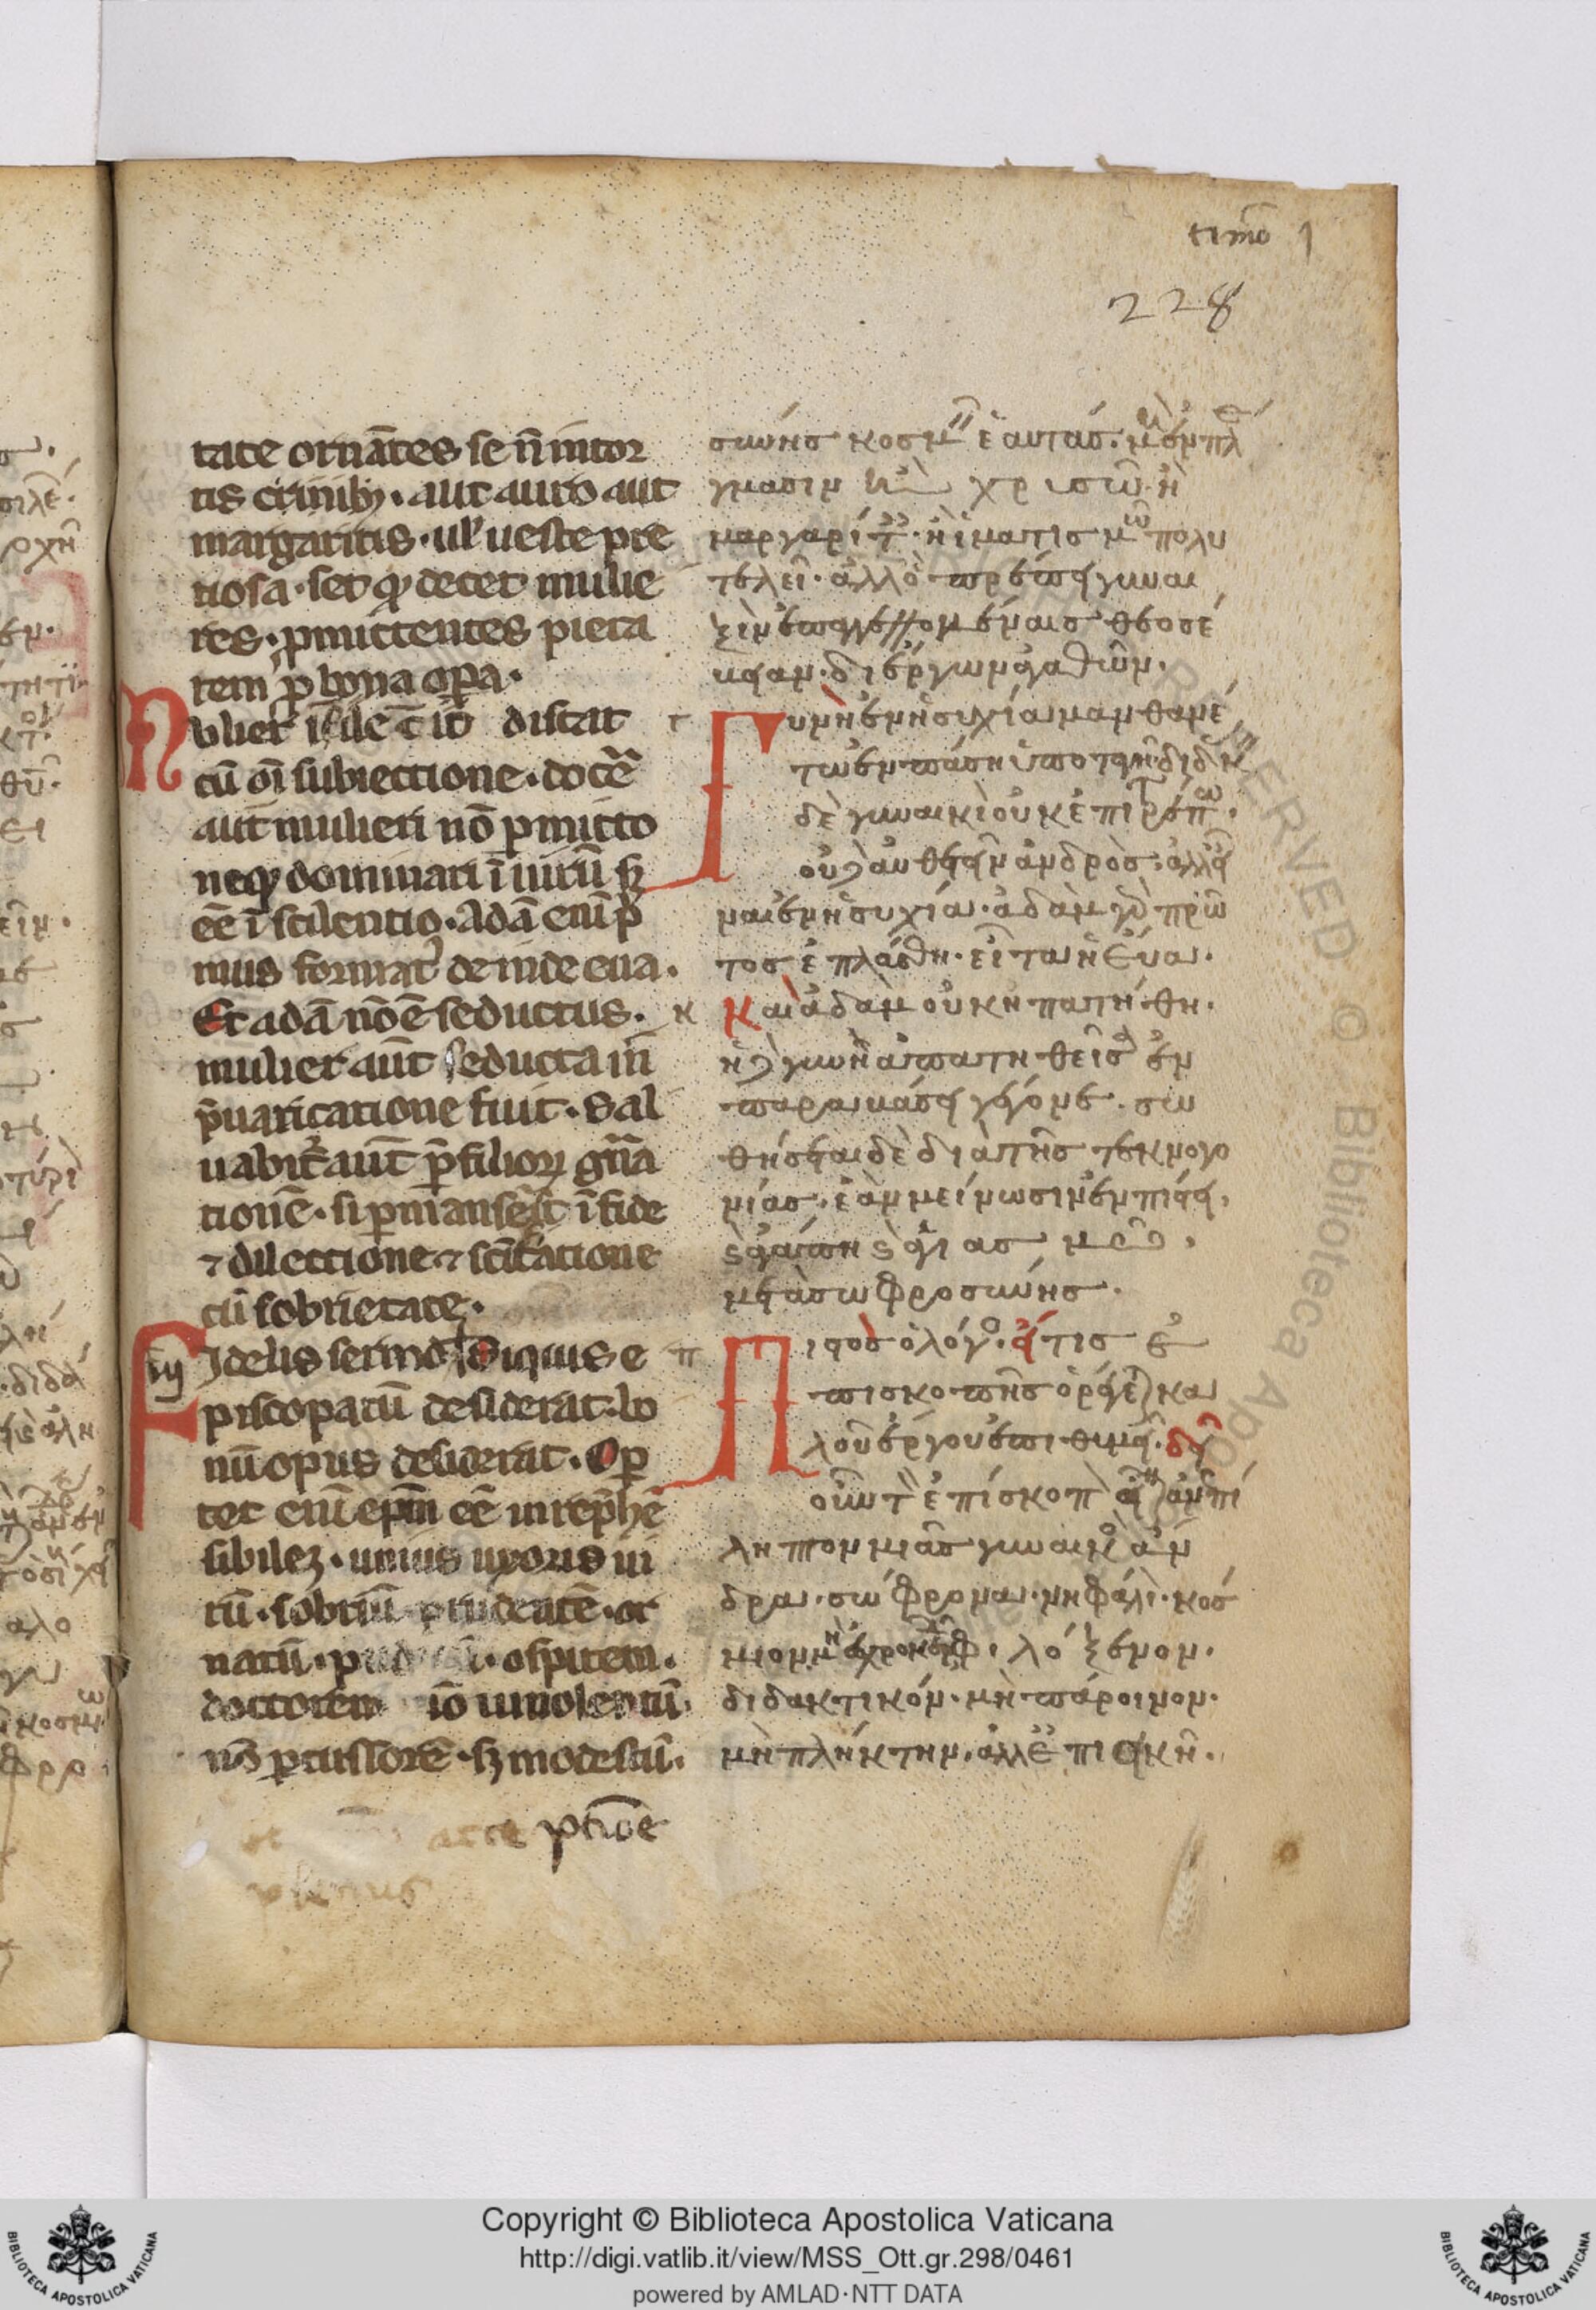 timo 1
228
tate ornātes se ñ intor
tis crinibȝ · aut auro aut
margaritis · ul' ueste pre
tiosa · set qđ decet mulie
res · pmittentes pieta
tem p bona opa ·
Mulier ī silētio discat
cū oī subiectione · docē
aūt mulieri nō pmitto
neqȝ dominari ī uirū sȝ
eē ī scilentio · Adā enī p
mus format' deinde eua ·
Et adā nō ē seductus ·
mulier aūt seducta in
puaricatione fuit · Sal
uabit' aūt p filioȝ gña
tionē · si pmanserīt ī fide
⁊ dilectione ⁊ scīficatione
cū sobrietate ·
iij Fidelis sermo Siquis e
piscopatū desiderat · bo
nū opus desiderat · Opor
tet enī epm eē inrephē
sibileȝ · unius uxoris ui
rū · sobriū prudentē · or
natū · pudicū · ospitem ·
doctorem nō uinolentū
nō pcussorē · sȝ modestū ·
σύνησ κοσμ ἑαυτάσ · μὴ ἐν πλ
γμασιν ἢ χρισῶ · ἢ
μαργαρίτ · ἢ ἱματισμῶ πολυ
τελεῖ · ἀλλ ὁ πρέπει γυναι
ξὶν ἐπαγγελλομέναισ θεοσέ
βειαν · δι ἔργων ἀγαθῶν ·
Γυνὴ ἐν ἡσυχία μανθανέ
τω ἐν πάση ὑποταγῆ · διδ
δὲ γυναικὶ οὐκ ἐπιτρέπω ·
οὐδ αὐθεντεῖν ἀνδρὸσ · ἀλλ εἶ
ναι ἐν ἡσυχία · ἀδὰμ γὰρ πρῶ
τοσ ἐπλάσθη · εἶτα ἡ εὔα ·
Καὶ ἀδὰμ οὐκ ἠπατήθη ·
ἡ δ γυνὴ ἀπατηθεῖσ ἐν
παραβάσει γέγονε · σω
θήσεται δὲ διὰ τῆσ τεκνογο
νίασ · ἐὰν μείνωσιν ἐν πίστει ·
ϛ ἀγάπη ϛ ἁγιασμῶ ·
μετὰ σωφροσύνησ ·
Πιστὸσ ὁ λόγο · εἴ τισ ἐ
πισκοπῆσ ὀρέγε κα
λοῦ ἔργου ἐπιθυμεῖ · δεῖ
οὖν τ ἐπίσκοπ εἶν ἀνεπί
ληπτον μιᾶσ γυναικ ἄν
δρα · σώφρονα · νηφάλι · κόσ
μιον · φιλόξενον ·
διδακτικόν · μὴ πάροινον ·
μὴ πλήκτην · ἀλλ ἐπιεικῆ ·
Copyright © Biblioteca Apostolica Vaticana
http://digi.vatlib.it/view/MSS_Ott.gr.298/0461
powered by AMLAD·NTT DATA